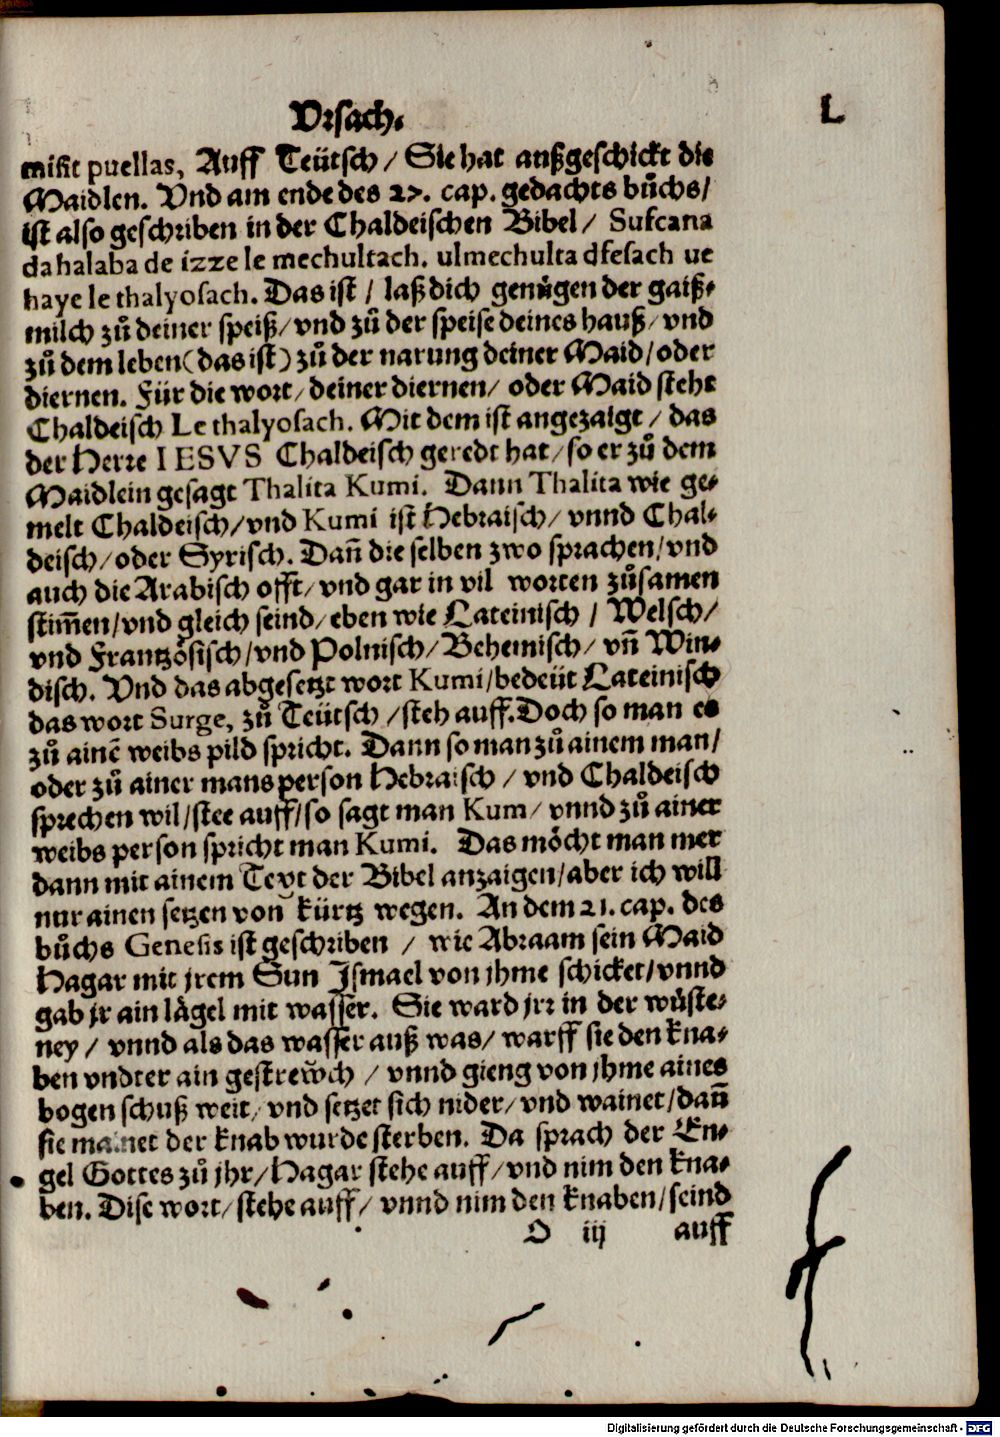 Vrsach.
L
misit puellas, Auff Teütsch / Sie hat außgeschickt die
Maidlen. Vnd am ende des 27. cap. gedachts bůchs /
ist also geschriben in der Chaldeischen Bibel / Sufcana
da halaba de izze le mechultach. ulmechulta dfesach ue
haye le thalyosach. Das ist / laß dich genůgen der gaiß-
milch zů deiner speiß / vnd zů der speise deines hauß / vnd
zů dem leben (das ist) zů der narung deiner Maid / oder
diernen. Für die wort / deiner diernen / oder Maid steht
Chaldeisch Le thalyosach. Mit dem ist angezaigt / das
der Herre IESVS Chaldeisch geredt hat / so er zů dem
Maidlein gesagt Thalita Kumi. Dann Thalita wie ge-
melt Chaldeisch / vnd Kumi ist Hebraisch / vnnd Chal-
deisch / oder Syrisch. Dañ die selben zwo sprachen / vnd
auch die Arabisch offt / vnd gar in vil worten zůsamen
stim̃en / vnd gleich seind / eben wie Lateinisch / Welsch /
vnd Frantzösisch / vnd Polnisch / Behemisch / vñ Win-
disch. Vnd das abgesetzt wort Kumi / bedeüt Lateinisch
das wort Surge, zů Teütsch / steh auff. Doch so man es
zů ainẽ weibs pild spricht. Dann so man zů ainem man /
oder zů ainer mans person Hebraisch / vnd Chaldeisch
sprechen wil / stee auff / so sagt man Kum / vnnd zů ainer
weibs person spricht man Kumi. Das möcht man mer
dann mit ainem Text der Bibel anzaigen / aber ich will
nur ainen setzen von kürtz wegen. An dem 21. cap. des
bůchs Genesis ist geschriben / wie Abraam sein Maid
Hagar mit jrem Sun Jsmael von jhme schicket / vnnd
gab jr ain lägel mit wasser. Sie ward jrr in der wüste-
ney / vnnd als das wasser auß was / warff sie den kna-
ben vndter ain gestreẘch / vnnd gieng von jhme aines
bogen schuß weit / vnd setzet sich nider / vnd wainet / dañ
sie mainet der knab wurde sterben. Da sprach der En-
gel Gottes zů jhr / Hagar stehe auff / vnd nim den kna-
ben. Dise wort / stehe auff / vnnd nim den knaben / seind
O iij auff
Digitalisierung gefördert durch die Deutsche Forschungsgemeinschaft - DFG